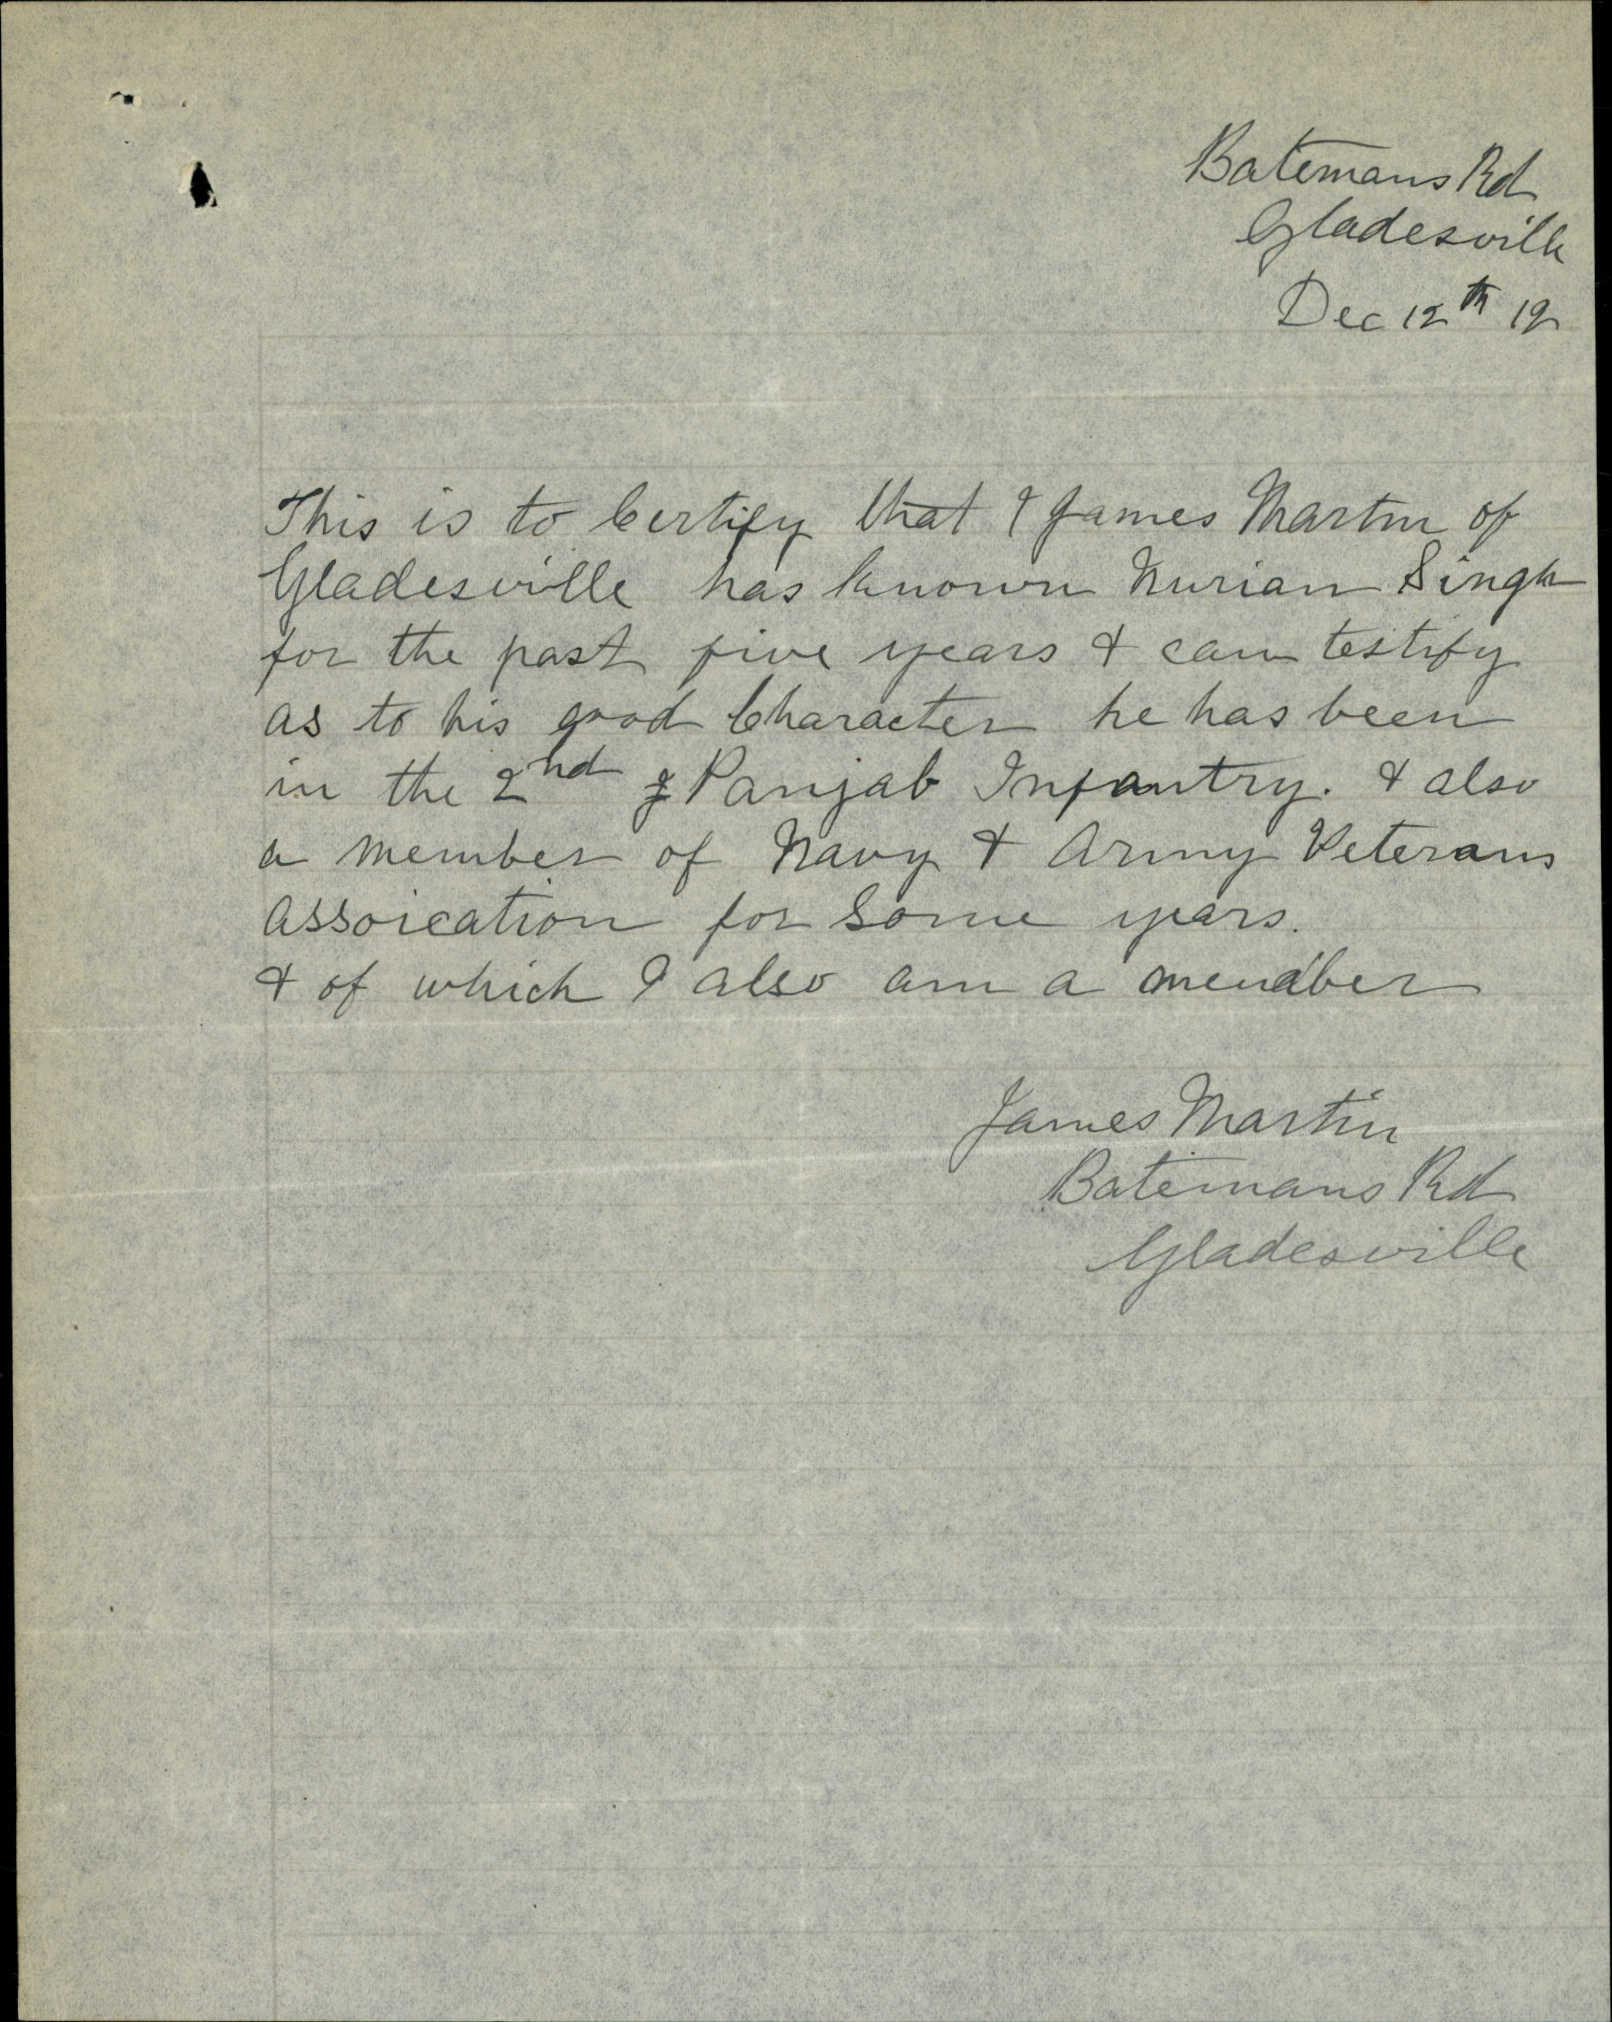 Batemans Rd
Gladesville
Dec 12th 19
This is to Certify that I James Martin of
Gladesville has known Nurian Singh
for the past five years & can testify
as to his good Character he has been
in the 2nd Panjab Infantry. & also
a member of Navy & Army Veterans
Assoication for some years.
& of which I also am a member
James Martin
Batemans Rd
Gladesville